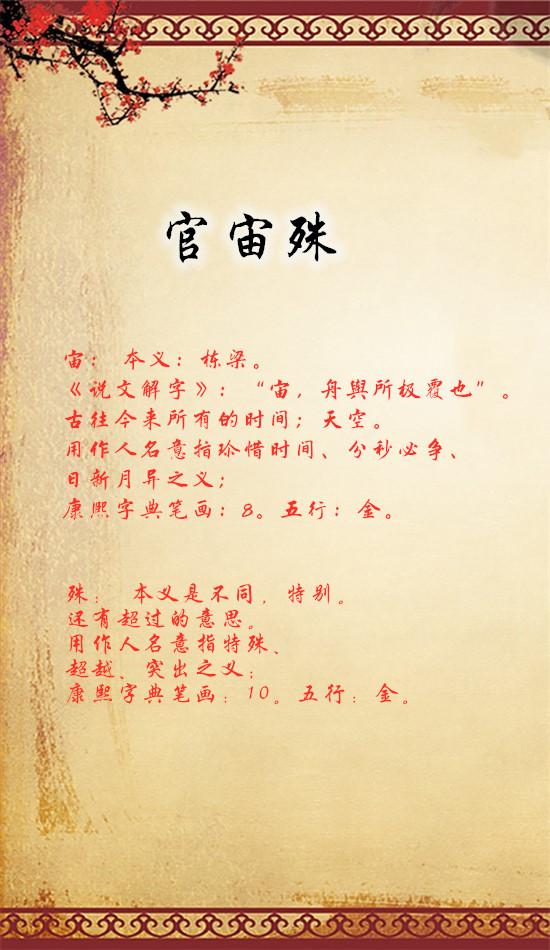 官宙殊
宙： 本义：栋梁。
《说文解字》：“宙，舟舆所极覆也”。
古往今来所有的时间；天空。
用作人名意指珍惜时间、分秒必争、
日新月异之义；
康熙字典笔画：8。五行：金。
殊： 本义是不同，特别。
还有超过的意思。
用作人名意指特殊、
超越、突出之义；
康熙字典笔画：10。五行：金。